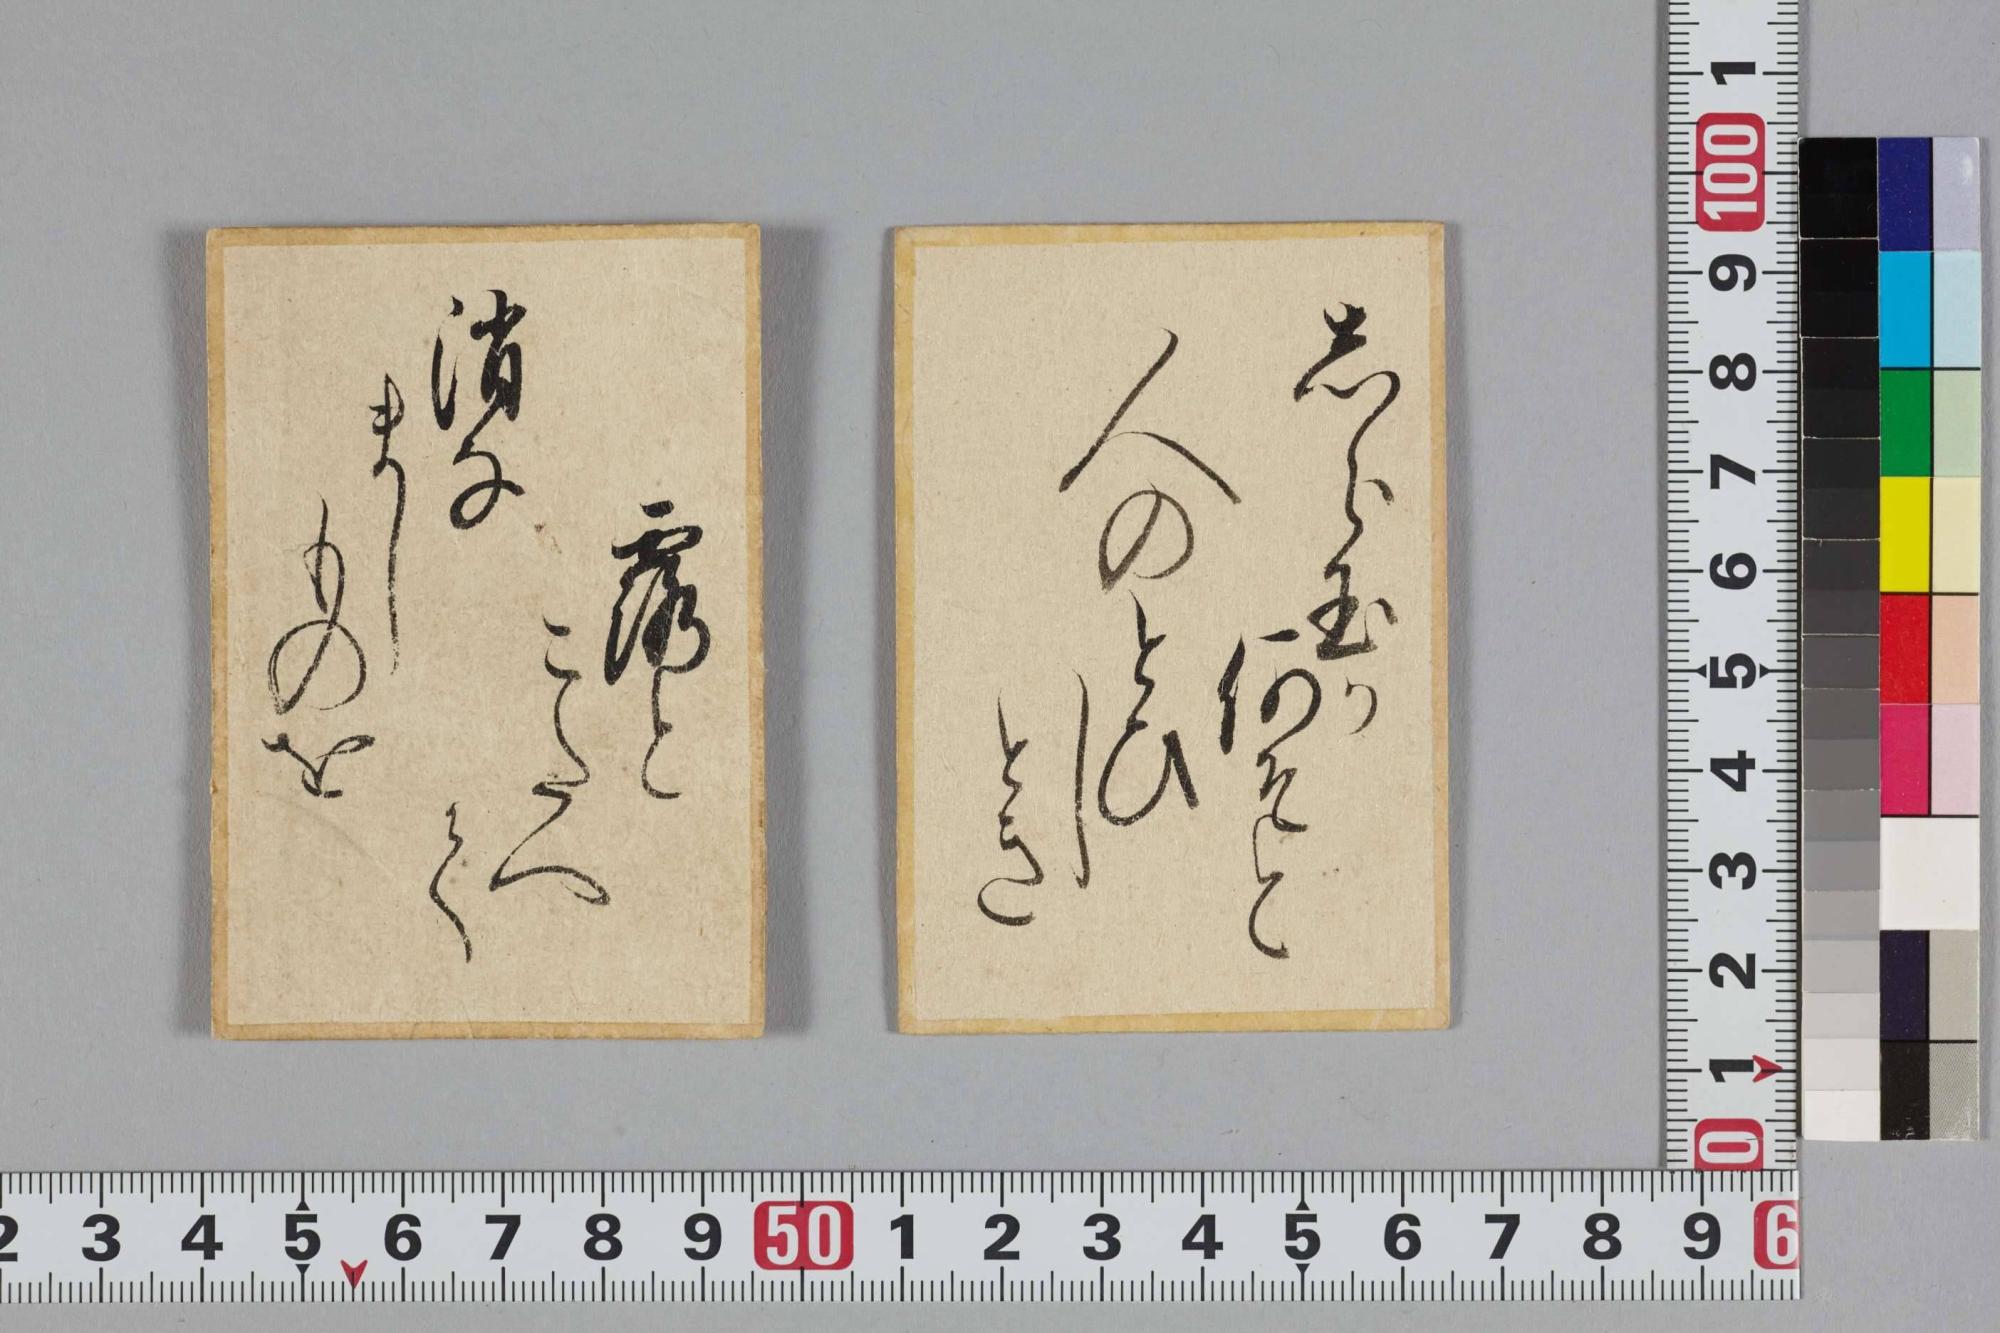 志ら玉か
何そと
人のとひ
し
とき
露と
こたへ
て
消な
まし
ものを
1
100
9
8
7
6
5
4
3
2
1
0
2 3 4 5 6 7 8 9 50 1 2 3 4 5 6 7 8 9 6